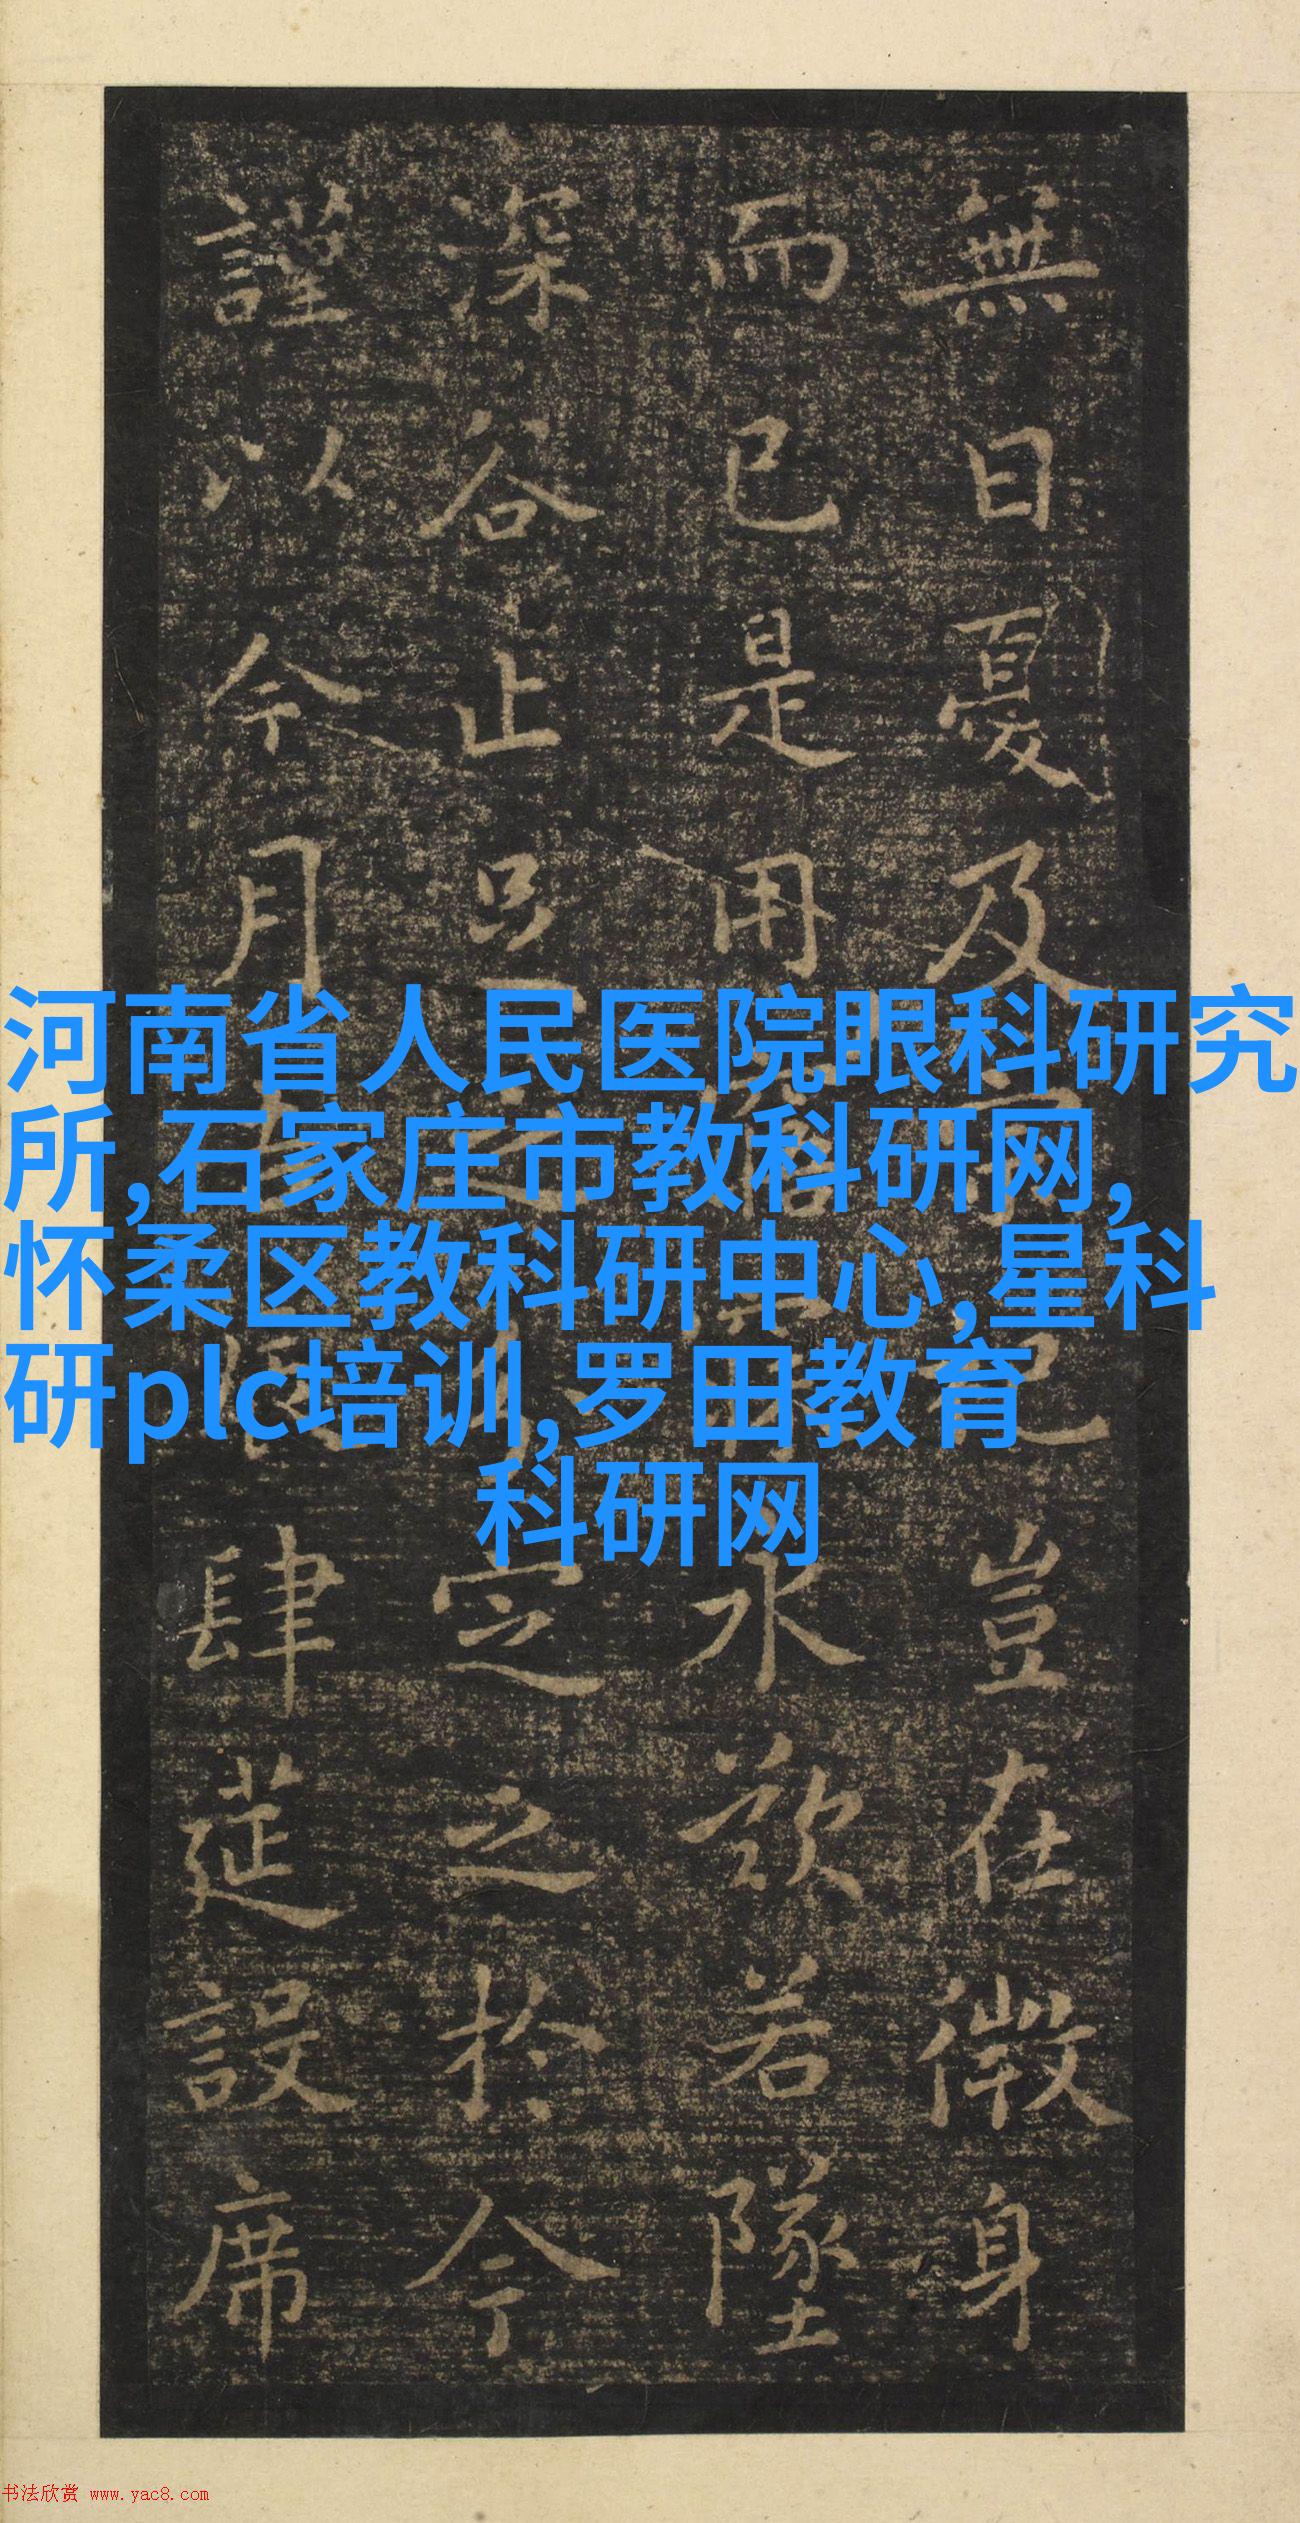 無日憂及豈在微身
而已是用永歎若墜
深谷止足之定之於今
謹以今月肆筵設席
河南省人民医院眼科研究
所,石家庄市教科研网,
怀柔区教科研中心,星科
研plc培训,罗田教育
科研网
书法欣赏 www.yac8.com